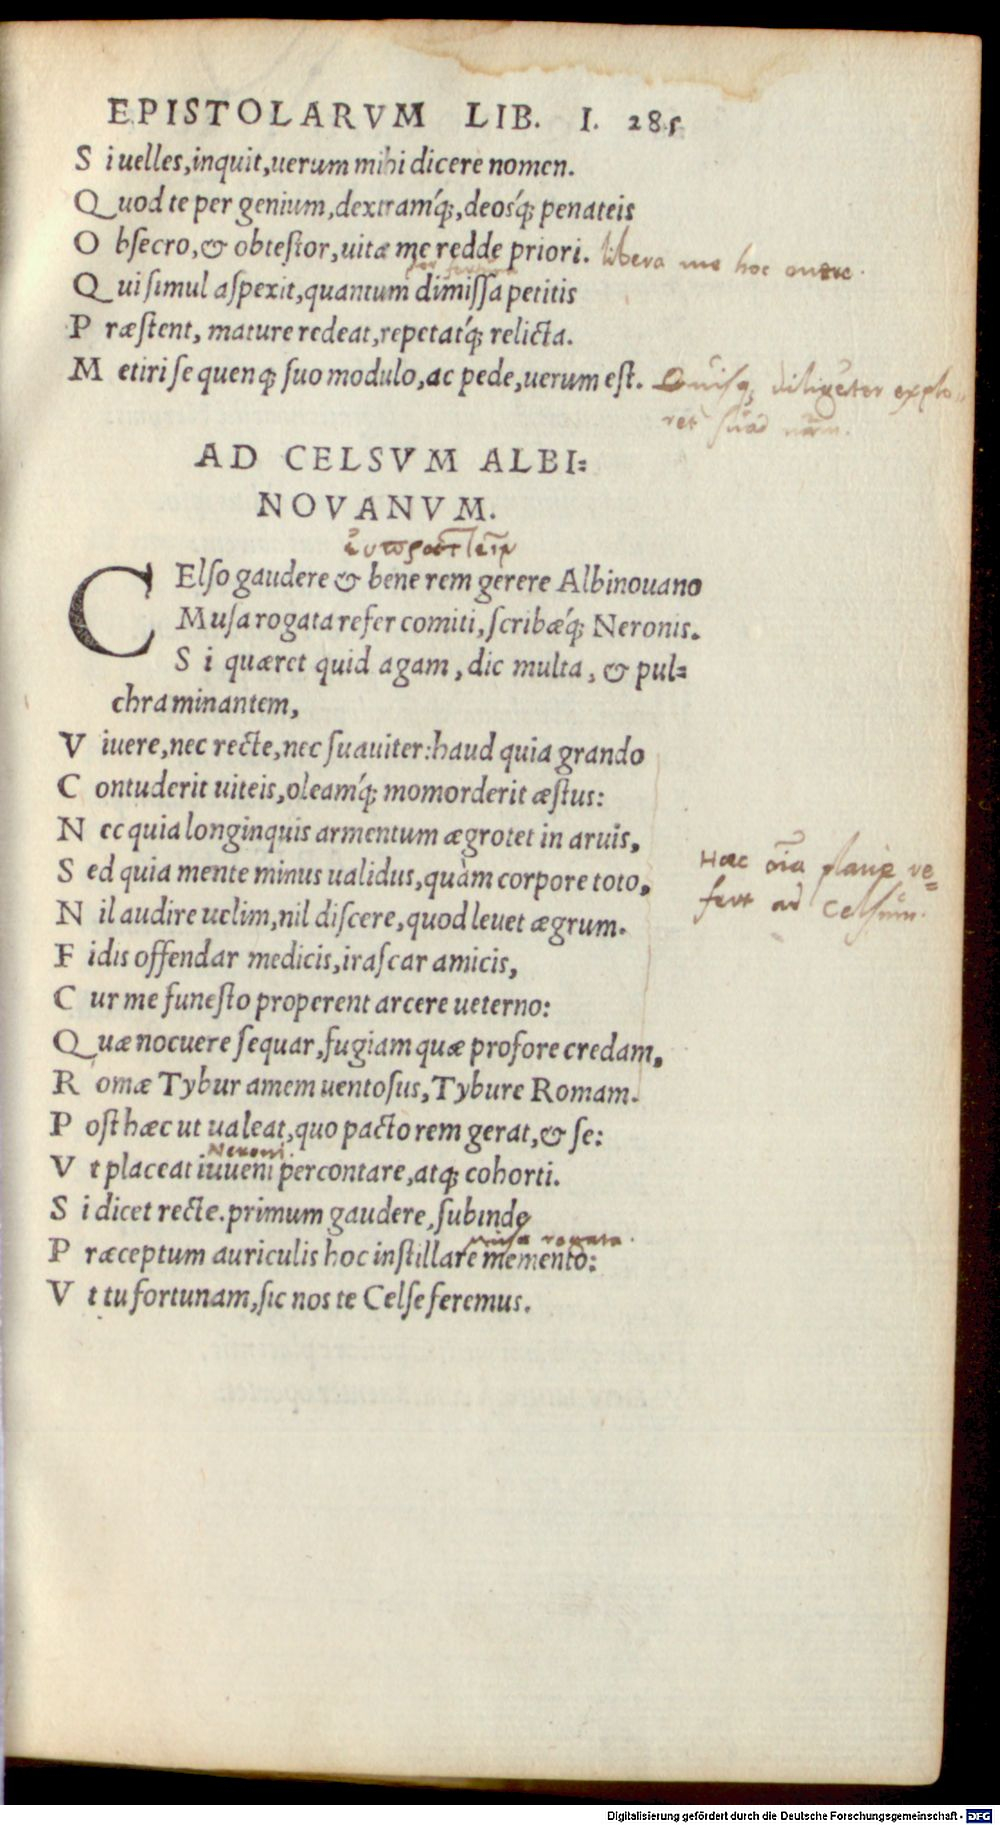 EPISTOLARVM LIB. I. 285
S i uelles, inquit, uerum mihi dicere nomen.
Q uod te per genium, dextramq́;, deosq́; penateis
O bſecro, & obteſtor, uitæ me redde priori. libera me hoc onere.
Q ui ſimul aſpexit, quantum dimiſſa petitis
P ræſtent, mature redeat, repetatq́; relicta.
M etiri ſe quenq; ſuo modulo, ac pede, uerum eſt. Quiſq; diligẽter explo=
ret ſuā
AD CELSVM ALBI=
NOVANVM.
C Elſo gaudere & bene rem gerere Albinouano
Muſa rogata refer comiti, ſcribæq́; Neronis.
S i quæret quid agam, dic multa, & pul=
chra minantem,
V iuere, nec recte, nec ſuauiter: haud quia grando
C ontuderit uiteis, oleamq́; momorderit æſtus:
N ec quia longinquis armentum ægrotet in aruis,
Hæc oı̄a plane re=
S ed quia mente minus ualidus, quàm corpore toto,
fert ad Celſum.
N il audire uelim, nil diſcere, quod leuet ægrum.
F idis offendar medicis, iraſcar amicis,
C ur me funeſto properent arcere ueterno:
Q uæ nocuere ſequar, fugiam quæ profore credam,
R omæ Tybur amem uentoſus, Tybure Romam.
P oſt hæc ut ualeat, quo pacto rem gerat, & ſe:
Neroni.
V t placeat iuueni percontare, atq; cohorti.
S i dicet recte. primum gaudere, ſubinde
muſa rogata.
P ræceptum auriculis hoc inſtillare memento:
V t tu fortunam, ſic nos te Celſe feremus.
Digitalisierung gefördert durch die Deutsche Forschungsgemeinschaft - DFG